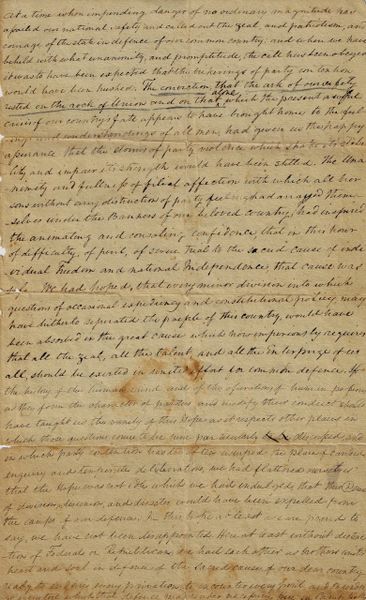 At a time when impending danger of no ordinary magnitude has
assailed our national safety and called out the zeal and patriotism, and
courage of the state in defence of our common country, and when we have
beheld with what unanimity, and promptitude, the call has been obeyed
it was to have been expected that the murmurings of party contention
would have been hushed. The conviction, that the ark of our safety
rested on the rock of Union and on that alone, which the present awful
crisis of our country's fate appears to have brought home to the feel
and understandings of all men, had given us the happy
assurance that the storms of party violence which shake its stabi
lity and impair its strength would have been stilled. The Una
nimity and fullness of filial affection with which all per
sons without any distinction of party feeling had arrayed them
selves under the Banners of our beloved country, had inspired
the animating and consoling confidence that in this hour
of difficulty, of peril, of severe trial to the sacred cause of indi
vidual freedom and national Independence that cause was
safe. We had hoped, that every minor division into which
questions of occasional expediency and constitutional policy may
have hitherto separated the people of this country, would have
been absorbed in the great cause which now imperiously requires
that all the zeal, all the talent, and all the interprize of us
all, should be exerted in united effort in common defence. If
the history of the human mind and of the operations of human
as they form the character of parties and modify their conduct should
have taught us the vanity of this Hope as it respects other places in
which those questions come to be more particularly discussed and
in which party contention has too often usurped the place of candid
enquiry and temperate deliberation, we had flattered ourselves
that the Hope was not idle which we had indulged that the Demon
of division, and disaster would have been expelled from
the camps of our defence. In this to be at least we are proud to
say, we have not been disappointed. Here at least without distinc
tion of Federal or Republican, we hail each other as brothers united
heart and soul in defence of the sacred cause of our dear country
ready to endure every privation, to encounter every peril and